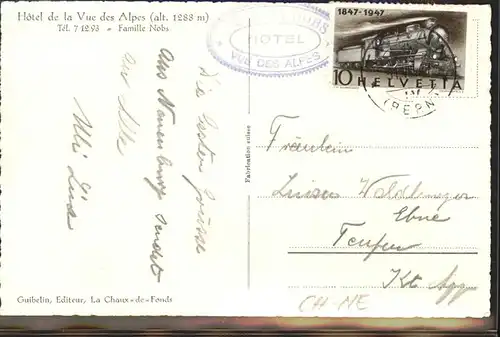 Hôtel de la Vue des Alpes (alt. 1288 m)
Tél. 7 12 93 - Famille Nobs
HOTEL
VUE DES ALPES
1847-1947
10 HELVETIA
(BERN
Die besten Grüsse
Aus Neuenburg sendet
Fabrication suisse
Fräulein
Luise Waldburger
Ebne
Teufen
Kt. App
CH-NE
Guibelin, Editeur, La Chaux-de-Fonds